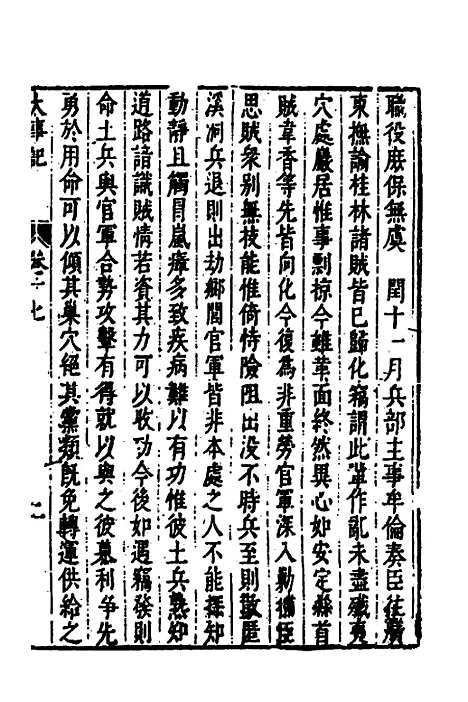 職役庶保無虞　閏十一月兵部主事牟倫奏臣往廣
東撫諭桂林諸賊皆已歸化竊謂此軰作亂未盡殱夷
穴處嚴居惟事剽掠今雖革面終然異心如安定縣首
賊韋香等先皆向化今復為非重勞官軍深入勦捕臣
思賊衆别無技能惟倚恃險阻出没不時兵至則散匿
溪洞兵退則出劫鄉閭官軍皆非本處之人不能探知
動静且觸冒嵐瘴多致疾病難以有功惟彼土兵熟知
道路諳識賊情若資其力可以收功今後如遇竊發則
命土兵與官軍合勢攻擊有得就以與之彼慕利爭先
勇於用命可以傾其巢穴絕其黨類旣免轉運供給之
大事記　卷二七　二